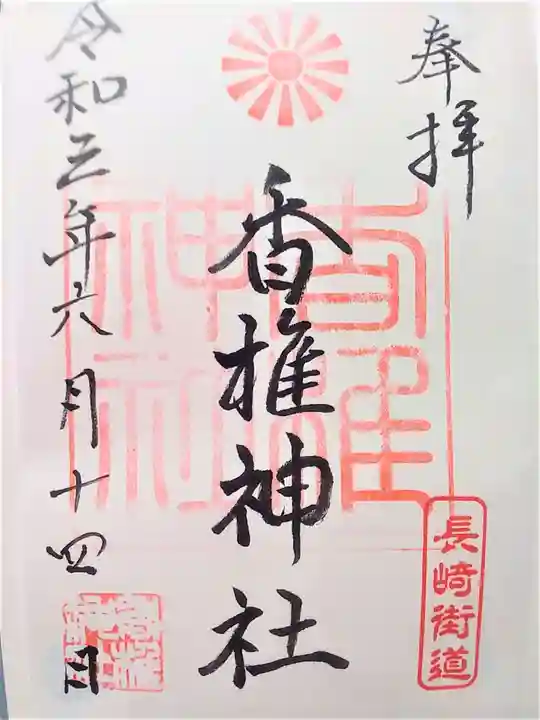 奉拝
長崎街道
香椎神社
令和三年六月十四日